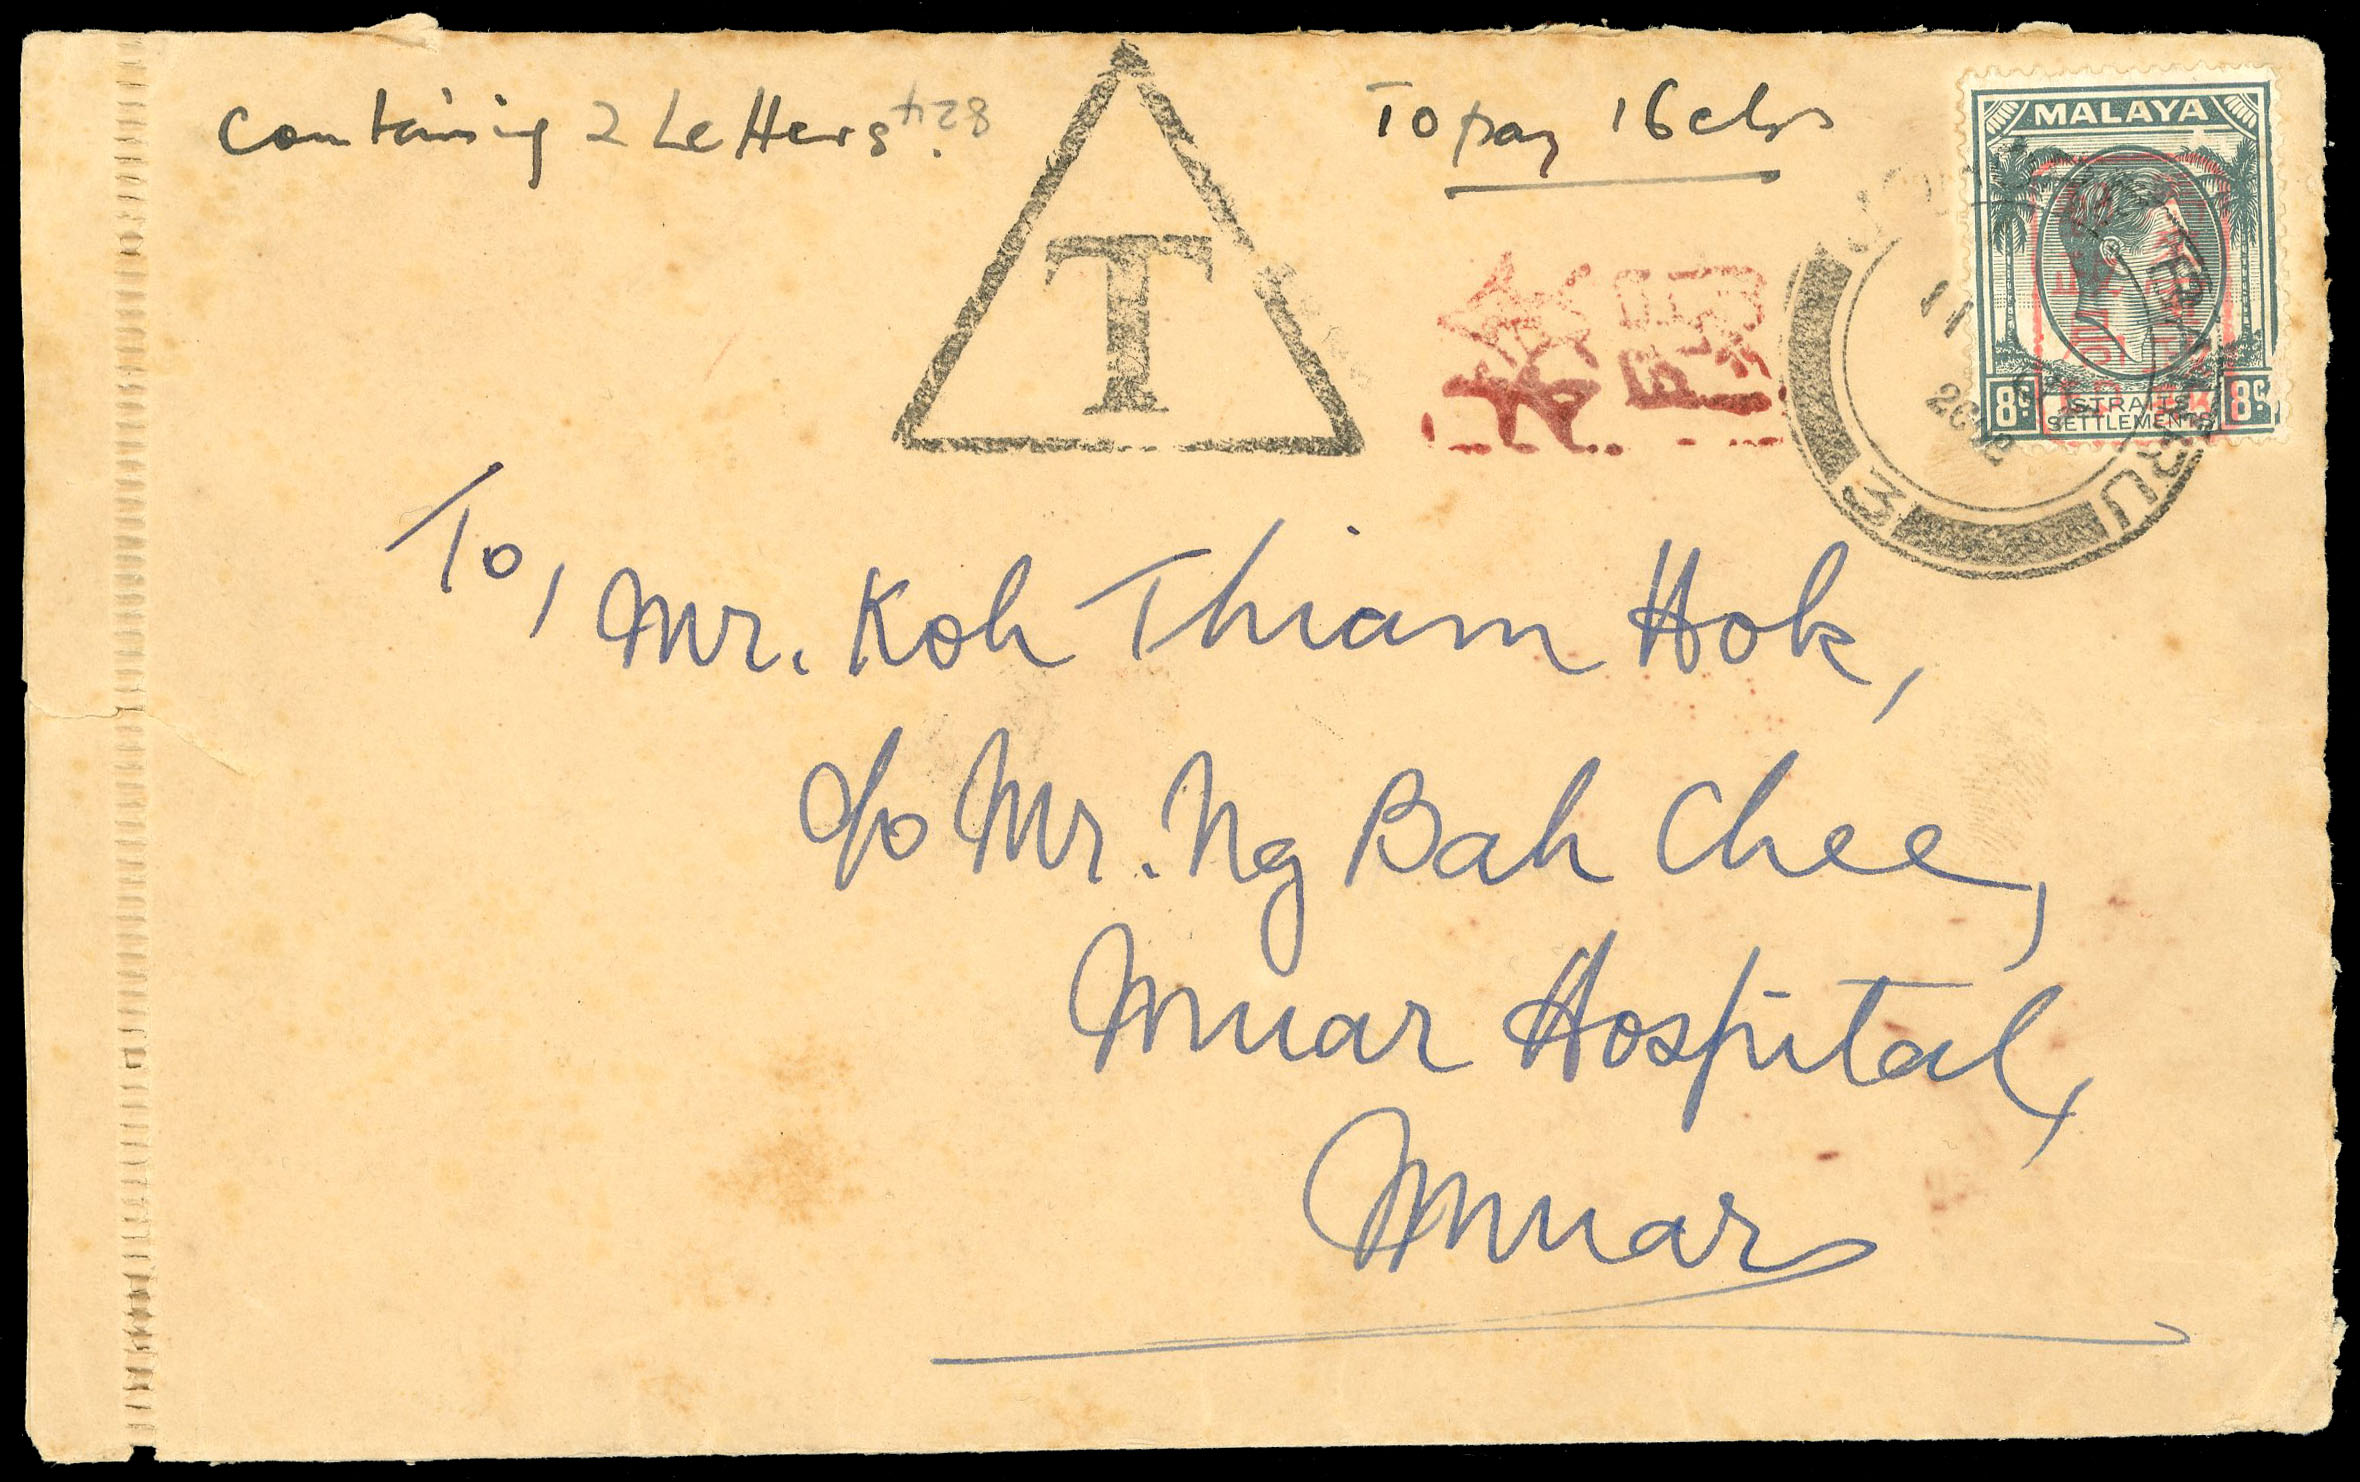 Containing 2 Letters 824
To pay 16 cts
T
MALAYA
8c STRAITS SETTLEMENTS 8c
11
2602
3
BRU
To,
Mr. Koh Thiam Hok,
c/o Mr. Ng Bah Chee,
Muar Hospital,
Muar